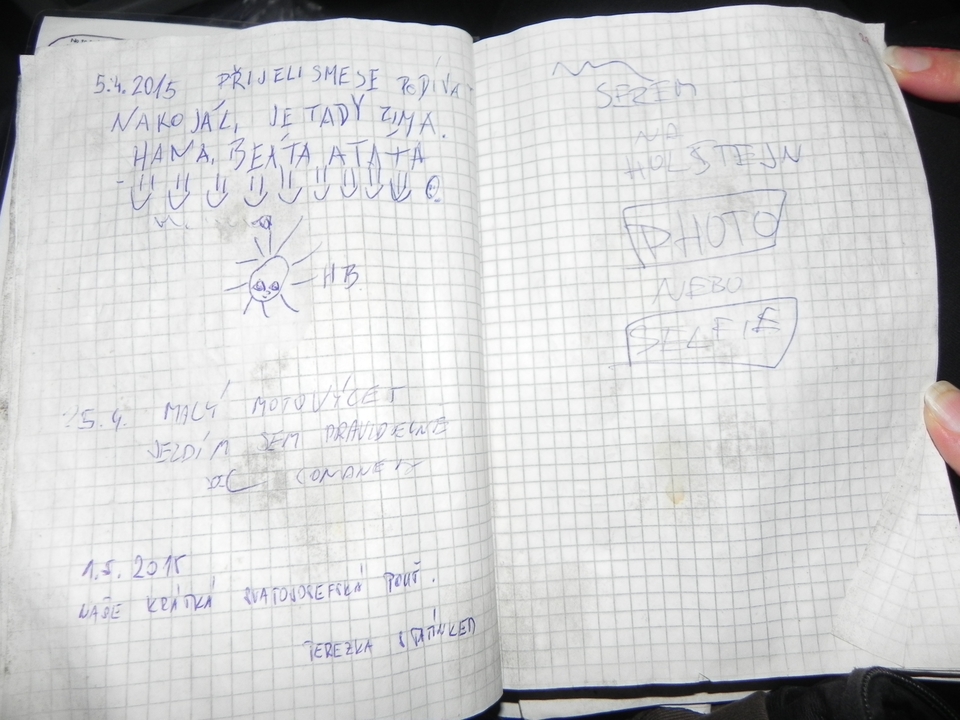 5.4.2015 PŘIJELI SME SE PODÍVA
NA KOJÁL, JE TADY ZIMA.
HANA, BEÁTA, A TÁTA
HB
25.4. MALÝ MOTOVÝLET
JEZDÍM SEM PRAVIDELNE
1.5. 2015
NAŠE KRÁTKÁ SVATOJOSEFSKÁ POUŤ.
TEREZKA S TATÍNKEM
SEREM
NA
HOLŠTEJN
PHOTO
NEBO
SELFIE